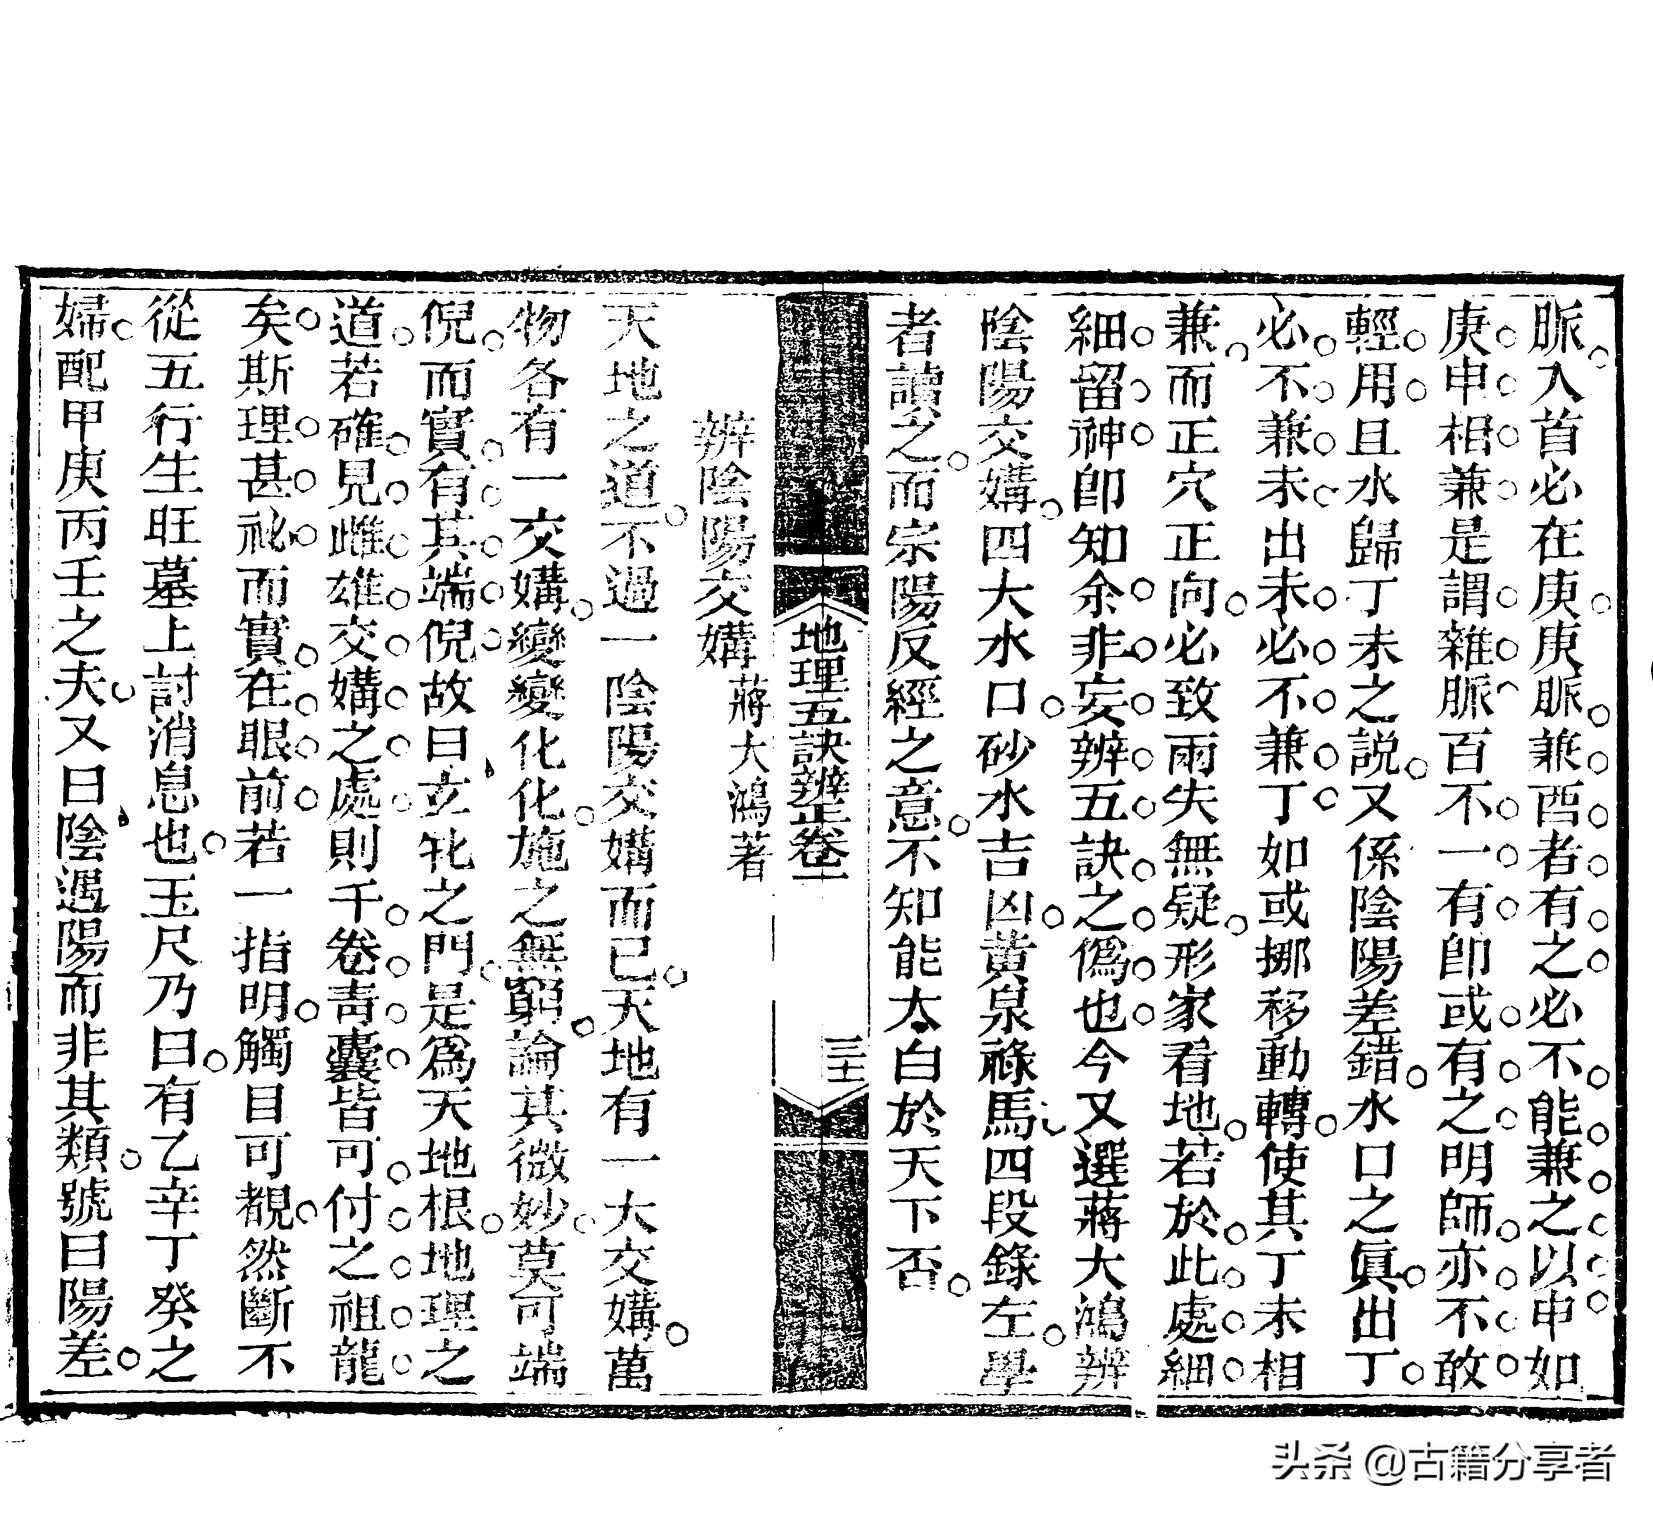 脈入首必在庚庚脈兼酉者有之必不能兼之以申如
庚申相兼是謂雜脈百不一有卽或有之明師亦不敢
輕用且水歸丁未之說又係陰陽差錯水口之眞出丁
必不兼未出未必不兼丁如或挪移動轉使其丁未相
兼而正穴正向必致雨失無疑形家看地若於此處細
細留神卽知余非妄辨五訣之僞也今又選蔣大鴻辨
陰陽交媾四大水口砂水吉凶黄泉祿馬四段錄左學
者讀之而宗陽反經之意不知能大白於天下否
地理五訣辨正卷一
三十
辨陰陽交媾 蔣大鴻著
天地之道不過一陰陽交媾而已天地有一大交媾萬
物各有一交媾變變化化施之無窮論其微妙莫可端
倪而實有其端倪故曰玄牝之門是爲天地根地理之
道若確見雌雄交媾之處則千卷靑囊皆可付之祖龍
矣斯理甚祕而實在眼前若一指明觸目可覩然斷不
從五行生旺墓上討消息也玉尺乃曰有乙辛丁癸之
婦配甲庚丙壬之夫又曰陰遇陽而非其類號曰陽差
头条 @古籍分享者